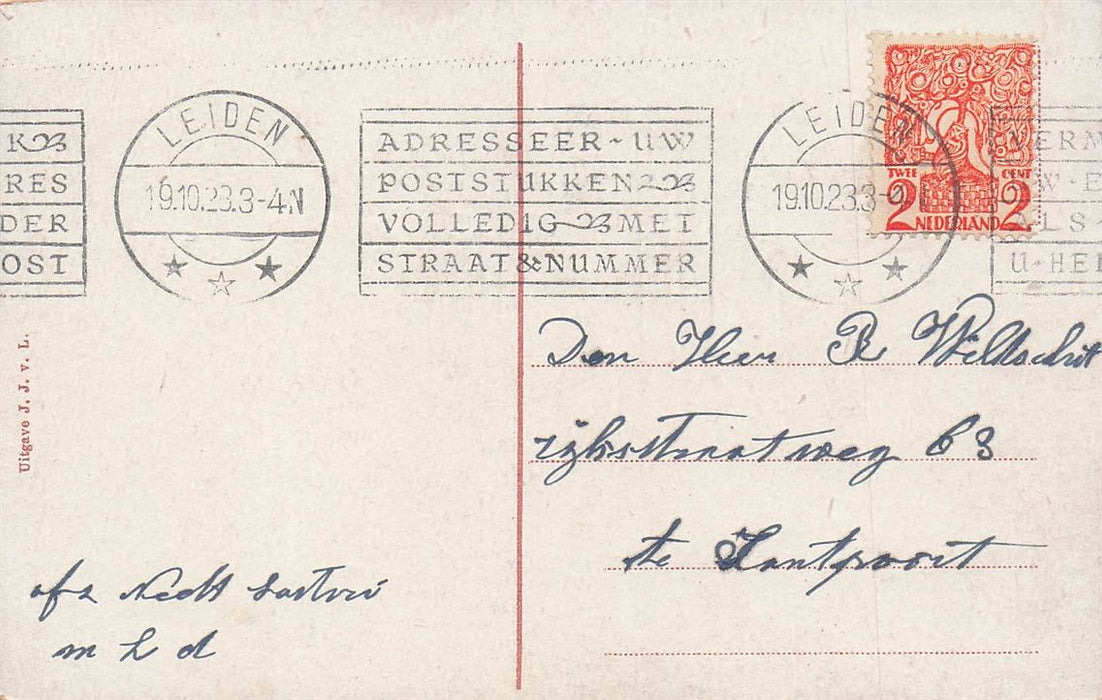 K
RES
DER
OST
LEIDEN
19.10.23.3-4N
ADRESSEER - UW
POSTSTUKKEN
VOLLEDIG MET
STRAAT & NUMMER
LEIDEN
19.10.23.3-
VERM
UW-E
ALS
U-HEI
TWEE CENT
2 2
NEDERLAND
Uitgave J. J. v. L.
Den Heer R Wildschut
rijksstraatweg 63
te Santpoort
afz
m L d